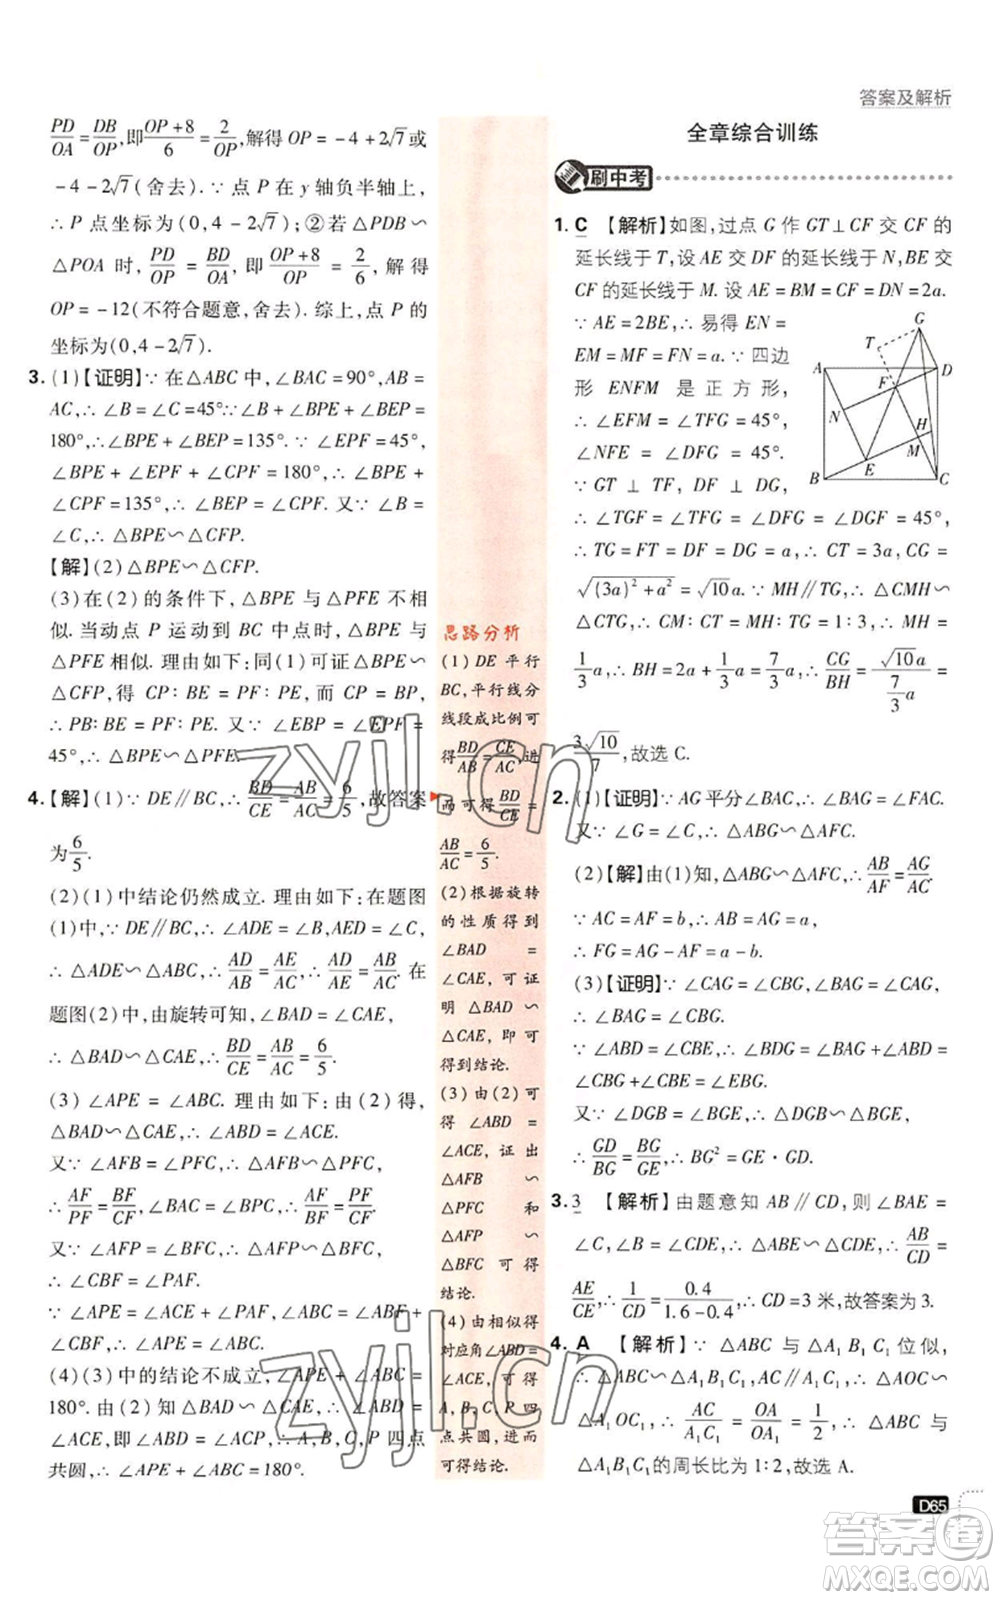 答案及解析
PD/OA = DB/OP,即(OP+8)/6 = 2/OP,解得 OP = -4+2√7或
-4-2√7(舍去).∵点 P 在 y 轴负半轴上,
∴P 点坐标为(0,4-2√7);②若△PDB∽
△POA 时,PD/OP = BD/OA,即(OP+8)/OP = 2/6,解得
OP = -12(不符合题意,舍去).综上,点 P 的
坐标为(0,4-2√7).
3. (1)【证明】∵在△ABC 中,∠BAC=90°,AB=
AC,∴∠B=∠C=45°∵∠B+∠BPE+∠BEP=
180°,∴∠BPE+∠BEP=135°.∵∠EPF=45°,
∠BPE+∠EPF+∠CPF=180°,∴∠BPE+
∠CPF=135°,∴∠BEP=∠CPF.又∵∠B=
∠C,∴△BPE∽△CFP.
【解】(2)△BPE∽△CFP.
(3)在(2)的条件下,△BPE 与△PFE 不相
似.当动点 P 运动到 BC 中点时,△BPE 与
△PFE 相似.理由如下:同(1)可证△BPE∽
△CFP,得 CP:BE=PF:PE.又∵CP=BP,
∴PB:BE=PF:PE.又∵∠EBP=∠EPF=
45°,∴△BPE∽△PFE.
4.【解】(1)∵DE∥BC,∴BD/CE = AB/AC = 6/5,故答案
为6/5.
(2)(1)中结论仍然成立.理由如下:在题图
(1)中,∵DE∥BC,∴∠ADE=∠B,AED=∠C,
∴△ADE∽△ABC,∴AD/AB = AE/AC,∴AD/AE = AB/AC.在
题图(2)中,由旋转可知,∠BAD=∠CAE,
∴△BAD∽△CAE,∴BD/CE = AB/AC = 6/5.
(3)∠APE=∠ABC.理由如下:由(2)得,
△BAD∽△CAE,∴∠ABD=∠ACE.
又∵∠AFB=∠PFC,∴△AFB∽△PFC,
∴AF/PF = BF/CF,∠BAC=∠BPC,∴AF/BF = PF/CF.
又∵∠AFP=∠BFC,∴△AFP∽△BFC,
∴∠CBF=∠PAF.
∵∠APE=∠ACE+∠PAF,∠ABC=∠ABF+
∠CBF,∴∠APE=∠ABC.
(4)(3)中的结论不成立,∠APE+∠ABC=
180°.由(2)知△BAD∽△CAE,∴∠ABD=
∠ACE,即∠ABD=∠ACP,∴A,B,C,P 四点
共圆,∴∠APE+∠ABC=180°.
思路分析
(1)DE 平行
BC,平行线分
线段成比例可
得BD/AB = CE/AC,进
而可得BD/CE =
AB/AC = 6/5.
(2)根据旋转
的性质得到
∠BAD =
∠CAE,可证
明△BAD∽
△CAE,即可
得到结论.
(3)由(2)可
得∠ABD=
∠ACE,证出
△AFB∽
△PFC和
△AFP∽
△BFC 可得
结论.
(4)由相似得
对应角∠ABD=
∠ACE,可得
A,B,C,P 四
点共圆,进而
可得结论.
全章综合训练
刷中考
1. C 【解析】如图,过点 G 作 GT⊥CF 交 CF 的
延长线于 T,设 AE 交 DF 的延长线于 N,BE 交
CF 的延长线于 M.设 AE=BM=CF=DN=2a.
∵AE=2BE,∴易得 EN=
EM=MF=FN=a.∵四边
形 ENFM 是正方形,
∴∠EFM=∠TFG=45°,
∠NFE=∠DFG=45°.
∵GT⊥TF,DF⊥DG,
∴∠TGF=∠TFG=∠DFG=∠DGF=45°,
∴TG=FT=DF=DG=a,∴CT=3a,CG=
√((3a)²+a²) = √10a.∵MH∥TG,∴△CMH∽
△CTG,∴CM:CT=MH:TG=1:3,∴MH=
1/3a,∴BH=2a+1/3a=7/3a,∴CG/BH = √10a/(7/3a) =
3√10/7,故选 C.
G
T
A
D
F
N
H
M
E
B
C
2. (1)【证明】∵AG 平分∠BAC,∴∠BAG=∠FAC.
又∵∠G=∠C,∴△ABG∽△AFC.
(2)【解】由(1)知,△ABG∽△AFC,∴AB/AF = AG/AC.
∵AC=AF=b,∴AB=AG=a,
∴FG=AG-AF=a-b.
(3)【证明】∵∠CAG=∠CBG,∠BAG=∠CAG,
∴∠BAG=∠CBG.
∵∠ABD=∠CBE,∴∠BDG=∠BAG+∠ABD=
∠CBG+∠CBE=∠EBG.
又∵∠DGB=∠BGE,∴△DGB∽△BGE,
∴GD/BG = BG/GE,∴BG²=GE·GD.
3. 3 【解析】由题意知 AB∥CD,则∠BAE=
∠C,∠B=∠CDE,∴△ABE∽△CDE,∴AB/CD =
AE/CE,∴1/CD = 0.4/(1.6-0.4),∴CD=3 米,故答案为 3.
4. A 【解析】∵△ABC 与△A₁B₁C₁位似,
∴△ABC∽△A₁B₁C₁,AC∥A₁C₁,∴△AOC∽
△A₁OC₁,∴AC/A₁C₁ = OA/OA₁ = 1/2,∴△ABC 与
△A₁B₁C₁的周长比为 1:2,故选 A.
D65
zyjl.cn
zyjl.cn
答案圈
MXQE.COM